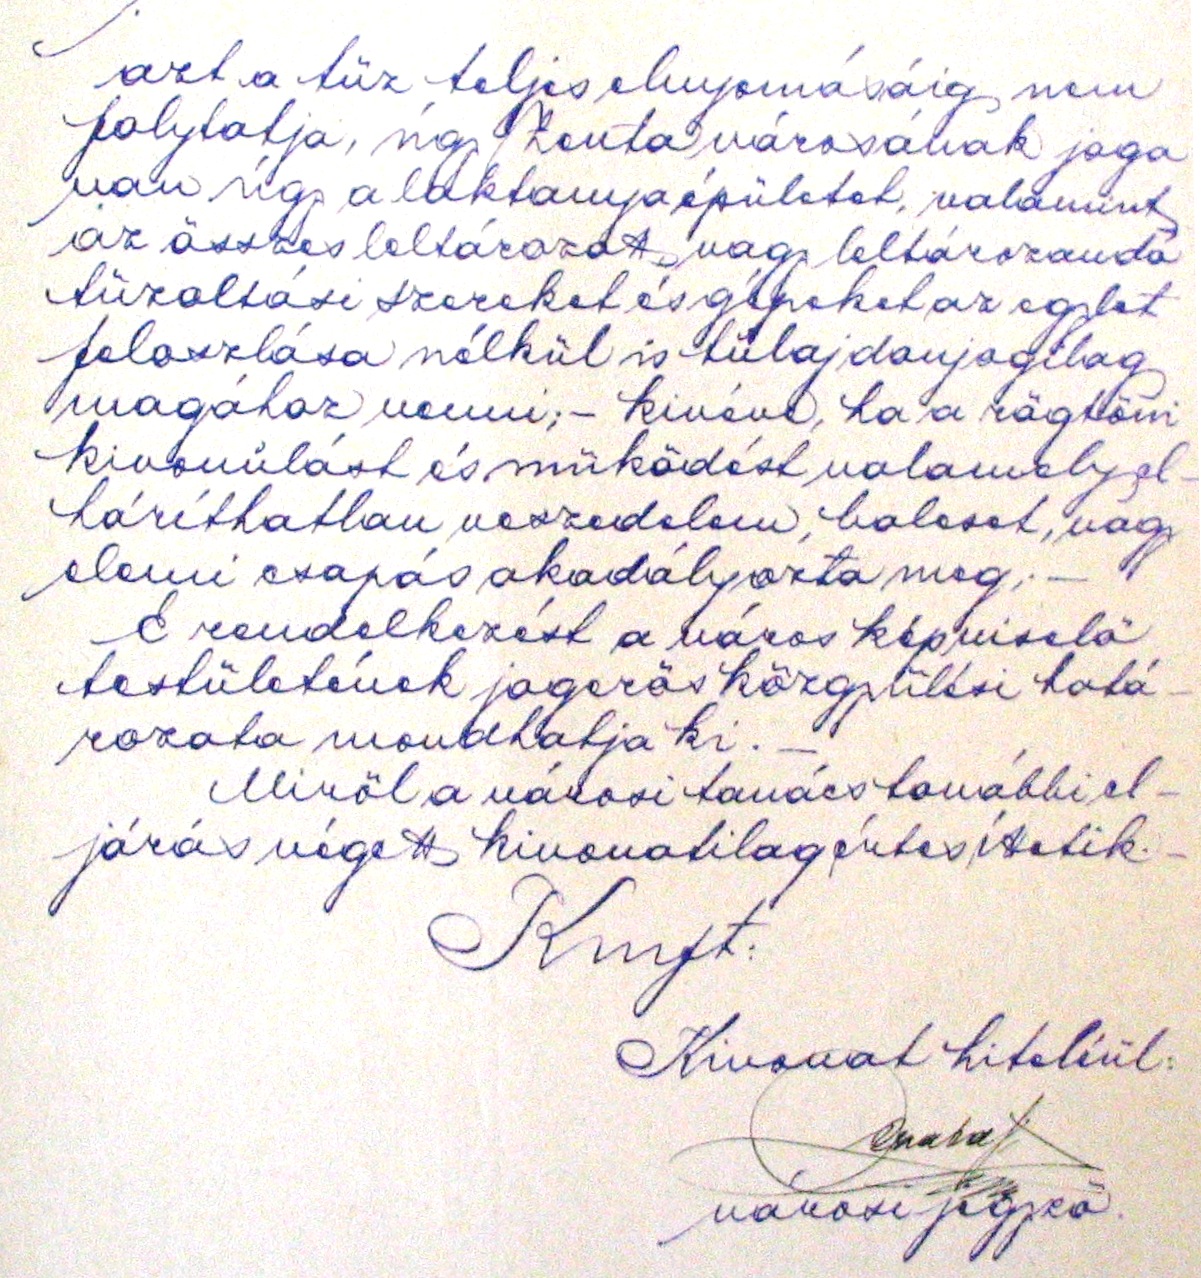 azt a tűz teljes elnyomásáig nem
folytatja, úgy Zenta városának joga
van úgy a laktanya épületet, valamint
az összes leltározott, vagy leltározandó
tűzoltási szereket és gépeket az egylet
feloszlása nélkül is tulajdonjogilag
magához venni; – kivéve, ha a rögtöni
kivonulást és működést valamely el-
háríthatlan veszedelem, baleset, vagy
elemi csapás akadályozta meg. –
E rendelkezést a város képviselő
testületének jogerős közgyűlési hatá-
rozata mondhatja ki. –
Miről a városi tanács további el-
járás végett kivonatilag értesíttetik. –
Kmft:
Kivonat hiteléül:
városi jegyző.